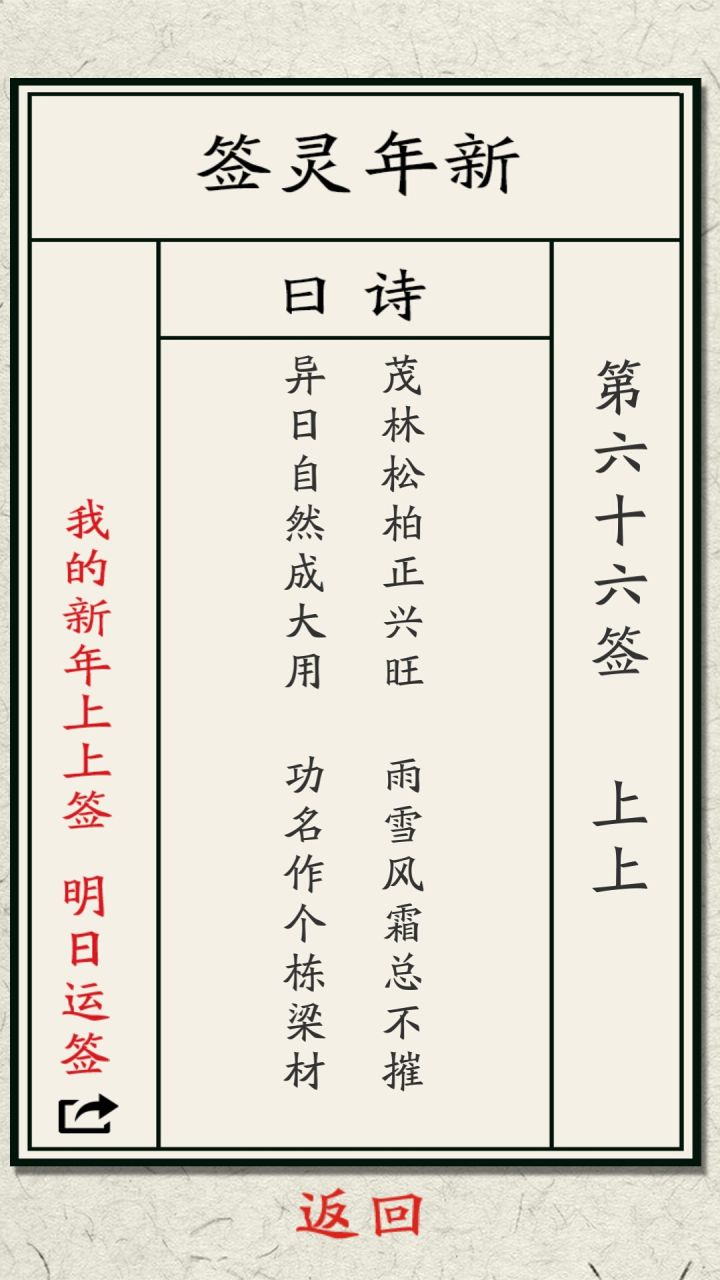 新年灵签
诗曰
第六十六签 上上
茂林松柏正兴旺 雨雪风霜总不摧
异日自然成大用 功名作个栋梁材
我的新年上上签 明日运签
返回